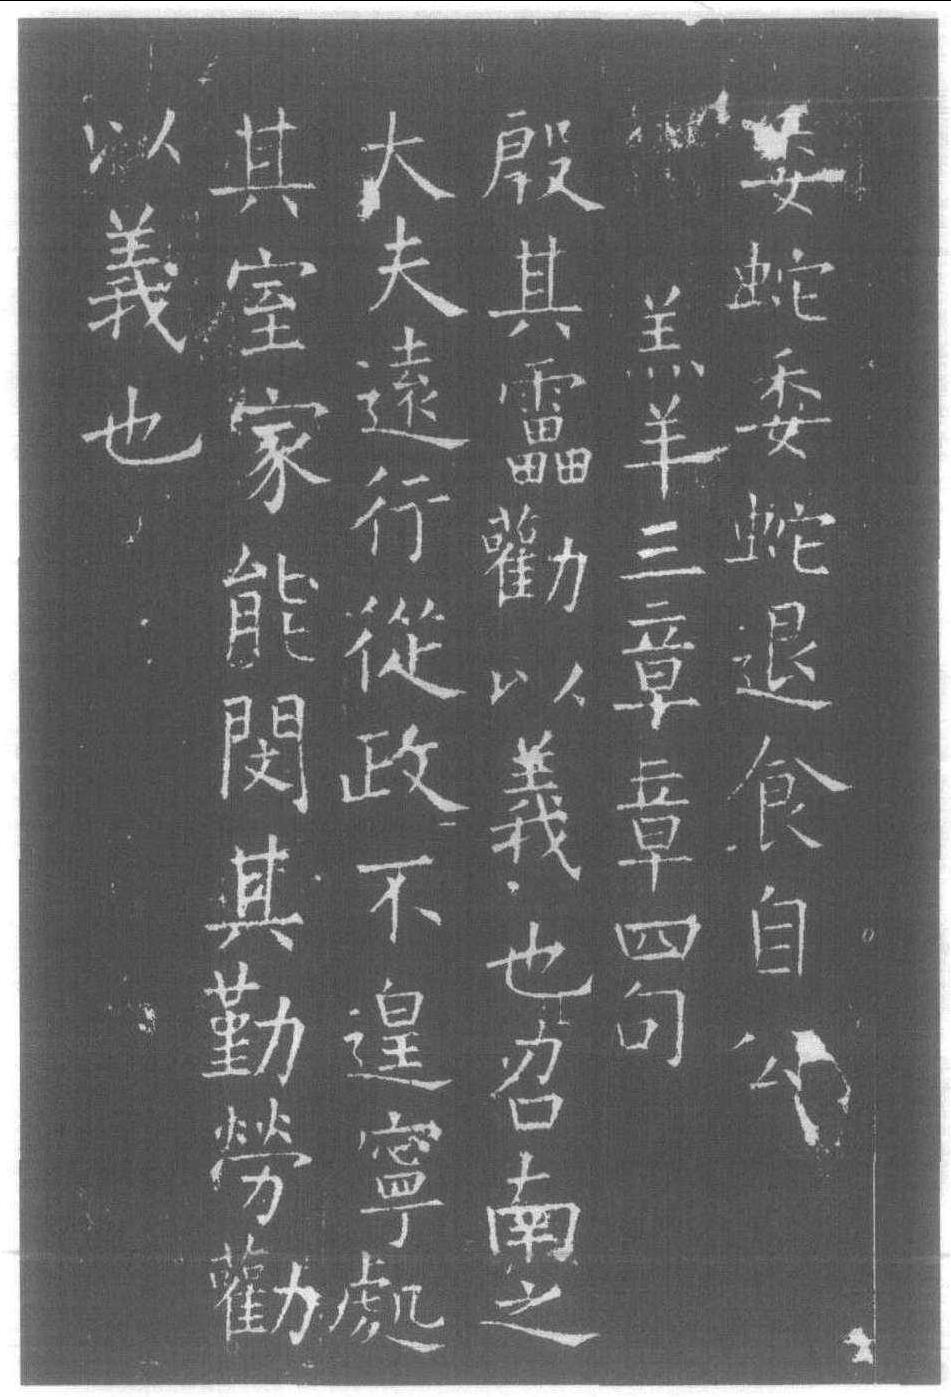 委蛇委蛇退食自公
羔羊三章章四句
殷其靁勸以義也召南之
大夫遠行從政不遑寧處
其室家能閔其勤勞勸
以義也